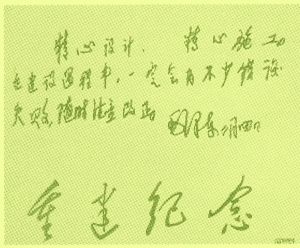 精心设计，精心施工
在建设过程中，一定会有不少错误
失败，随时注意改正
毛泽东 二月四日
重建纪念